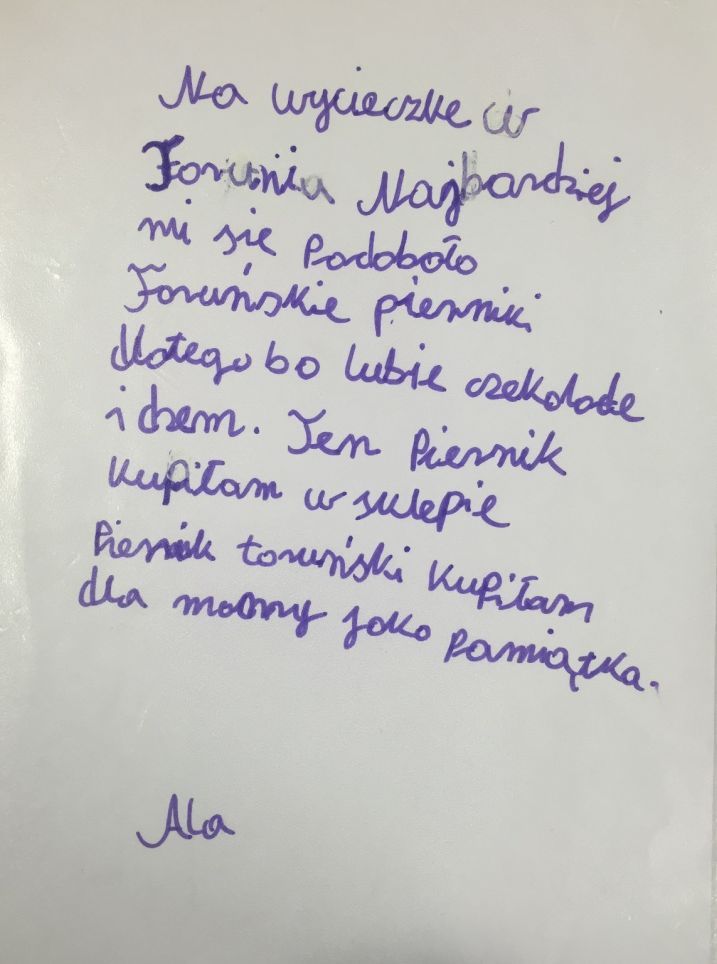 Na wycieczke w
Torunia Najbardziej
mi się Podobało
Toruńskie pierniki
dlatego bo lubie czekolade
i dzem. Ten Piernik
Kupiłam w sklepie
Piernik toruński Kupiłam
dla mamy jako Pamiątka.
Ala